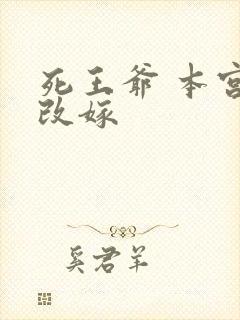 死王爷 本宫
改嫁
奚君羊